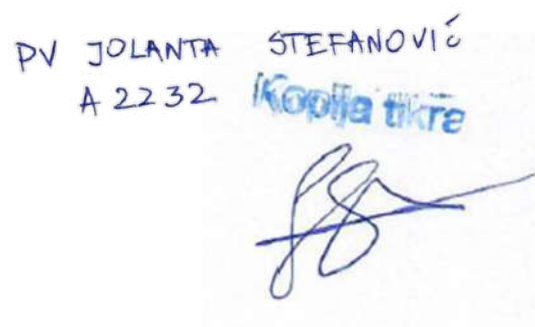 PV JOLANTA STEFANOVIĆ
A 2232
Kopija tikra